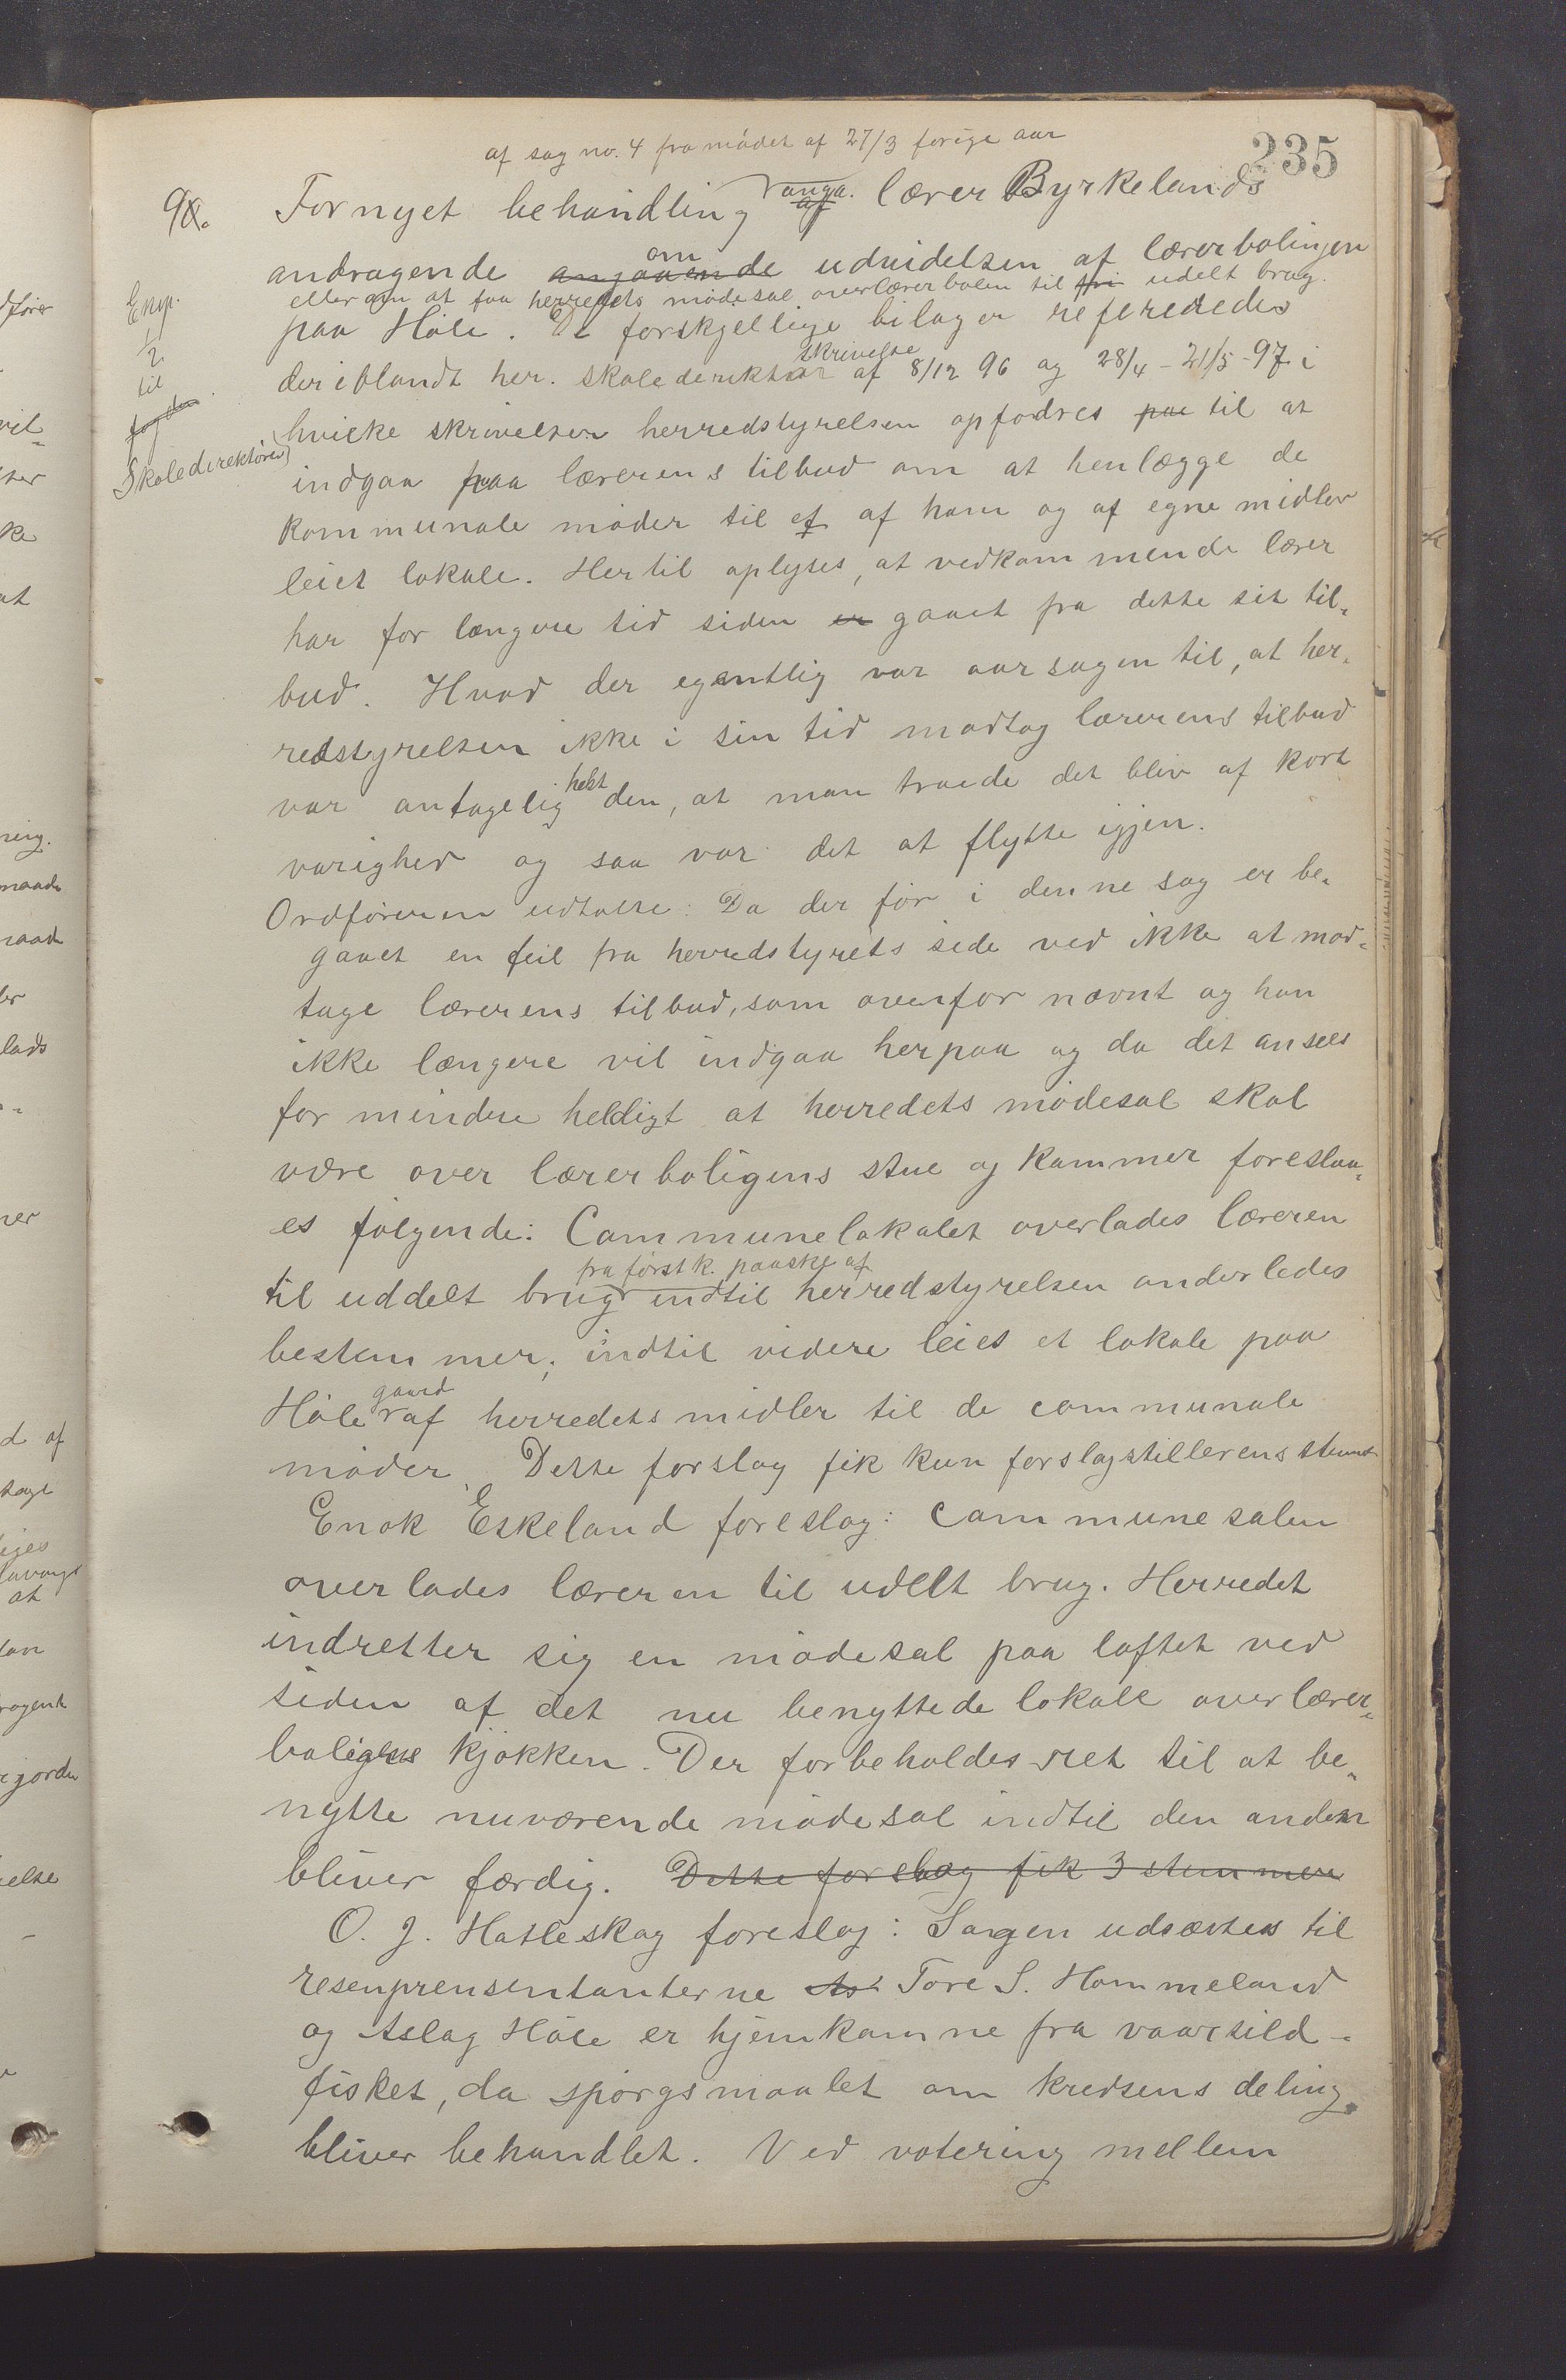 235
af sag no. 4 fra mødet af 27/3 forige aar
9. Fornyet behandling anga. lærer Byrkelands
andragende angaaende om udvidelsen af lærerbolingen
eller om at faa herredets mødesal over lærerbolen til fri udelt brug.
paa Høle. De forskjellige bilager referededes
deriblandt her. skoledirektør skrivelse af 8/12 96 og 28/4 - 21/5 - 97 i
hvilke skrivelser herredstyrelsen opfodres paa til at
indgaa paa lærerens tilbud om at henlægge de
kommunale møder til et af ham og af egne midler
leiet lokale. Hertil oplyses, at vedkommende lærer
har for længere tid siden er gaaet fra dette sit til-
bud. Hvad der egentlig var aarsagen til, at her-
redstyrelsen ikke i sin tid modtog lærerens tilbud
var antagelig helst den, at man troede det blev af kort
varighed og saa var det at flytte igjen.
Ordføreren udtalte: Da der før i denne sag er be-
gaaet en feil fra herredstyrets side ved ikke at mod-
tage lærerens tilbud, som ovenfor nævnt og han
ikke længere vil indgaa herpaa og da det ansees
for mindre heldigt at herredets mødesal skal
være over lærerboligens stue og kammer foreslaa-
es følgende: Communelokalet overlades læreren
til uddelt brug fra førstk. paaske af indtil herredstyrelsen anderledes
bestemmer; indtil videre leies et lokale paa
Høle gaard af herredets midler til de communale
møder. Dette forslag fik kun forslagstillerens stemme
Enok Eskeland foreslog: Communesalen
overlades læreren til udelt brug. Herredet
indretter sig en mødesal paa loftet ved
siden af det nu benyttede lokale over lærer-
boligens kjøkken. Der forbeholdes ret til at be-
nytte nuværende mødesal indtil den anden
bliver færdig. Dette forslag fik 3 stemmer
O. J. Hatleskog foreslog: Sagen udsættes til
resenprensentanterne As Tore S. Hommeland
og Aslag Høle er hjemkomne fra vaarsild-
fisket, da spørgsmaalet om kredsens deling
bliver behandlet. Ved votering mellem
Exp.
1/2
til
Skoledirektøren